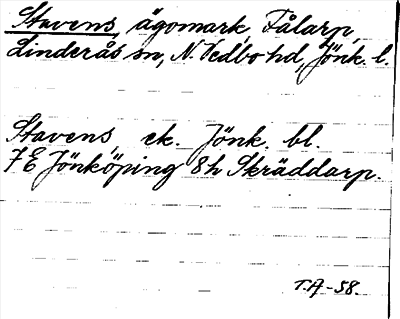 Stavens, ägomark, Fålarp,
Linderås sn, N. Vedbo hd, Jönk. l.
Stavens, ek. Jönk. bl.
7E Jönköping 8h Skräddarp.
T.A-58.